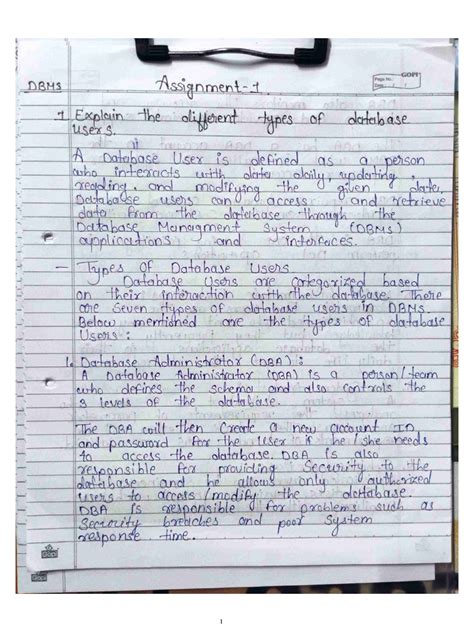 GOPI
Page No.:
Date: / /
DBMS Assignment-1
1. Explain the different types of database
users.
A Database User is defined as a person
who interacts with data daily, updating,
reading, and modifying the given data.
Database users can access and retrieve
data from the database through the
Database Managment System (DBMS)
applications and interfaces.
— Types Of Database Users
Database Users are categorized based
on their interaction with the database. There
are seven types of database users in DBMS.
Below mentioned are the types of database
Users:
1. Database Administrator (DBA):
A Database Administrator (DBA) is a person/team
who defines the schema and also controls the
3 levels of the database.
The DBA will then create a new account ID
and password for the user if he/she needs
to access the database. DBA is also
responsible for providing Security to the
database and he allows only authorized
users to access/modify the database.
DBA is responsible for problems such as
Security breaches and poor System
response time.
GOPI
1